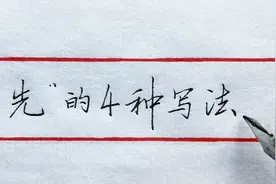 先”的4种写法